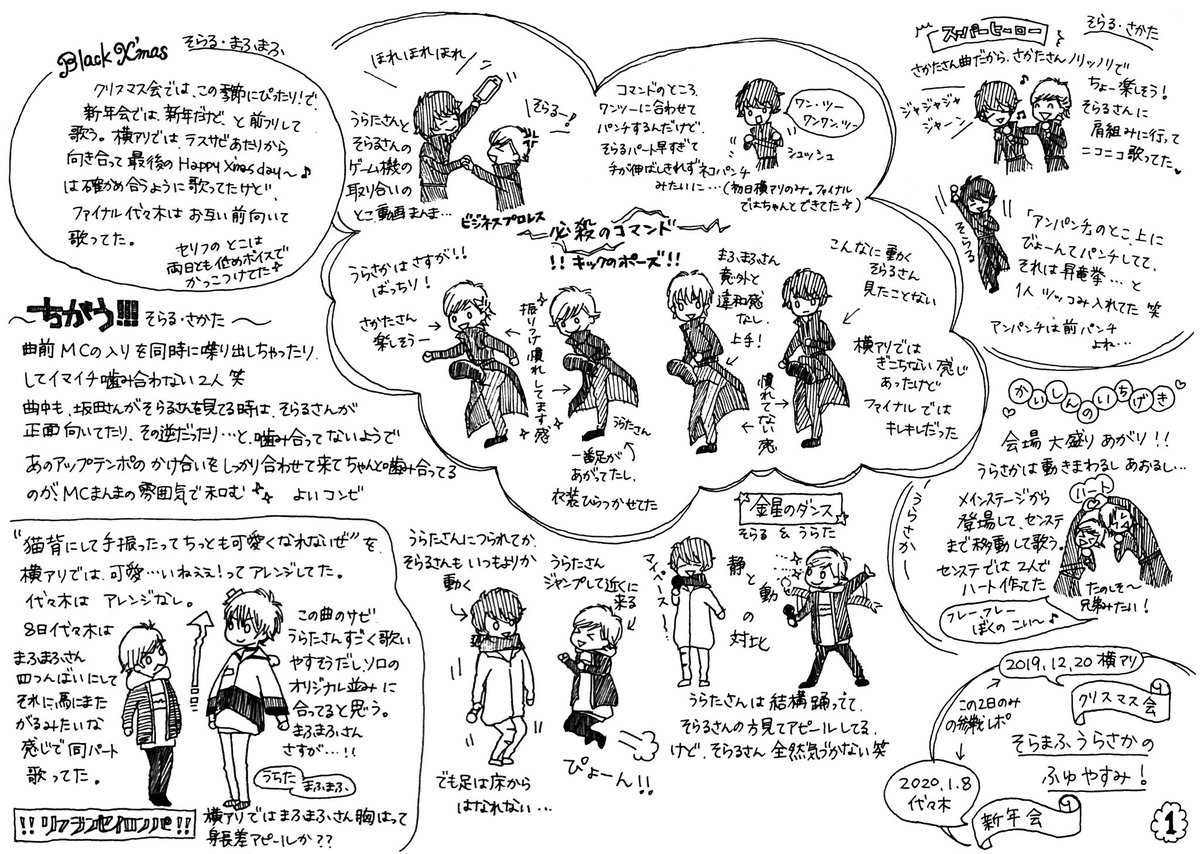 Black X'mas
そらる・まふまふ
クリスマス会では、この季節にぴったり!で、
新年会では、新年だけど、と前フリして
歌う。横アリでは ラスサビあたりから
向き合って最後のHappy Xmas day〜♪
は確かめ合うように歌ってたけど
ファイナル代々木は お互い前向いて
歌ってた。
セリフの とこは
両日とも低めボイスで
かっこつけてた
〜ちがう!!!
そらる・さかた 〜
曲前MCの入りを同時に喋り出しちゃったり、
してイマイチ噛み合わない2人 笑
曲中も、坂田さんがそらるさんを見てる時は、そらるさんが
正面向いてたり、その逆だったり…と、噛み合ってないようで
あのアップテンポの かけ合いをしっかり合わせて来てちゃんと噛み合ってる
のが、MCまんまの雰囲気で和む よいコンビ
ほれほれほれ
そらるー!
うらたさんと
そらるさんの
ゲーム機の
取り合いの
とこ動画まんま…
コマンドのところ、
ワンツーに合わせて
パンチするんだけど、
そらるパート早すぎて
手が伸ばしきれずネコパンチ
みたいに…(初日横アリのみ。ファイナル
ではちゃんとできてた☆)
ワン、ツー
ワンワン、ツー
シュッシュ
ビジネスプロレス
必殺のコマンド
!!キックのポーズ!!
うらさかは さすが!!
ばっちり!
さかたさん
楽しそう→
振りつけ慣れしてます感
うらたさん
一番足が
あがってたし、
衣装ひらつかせてた
まふまふさん
意外と
違和感
なし、
上手!
慣れてない感
こんなに動く
そらるさん
見たことない
横アリでは
ぎこちない感じ
あったけど
ファイナルでは
キレキレだった
スーパーヒーロー
そらる・さかた
さかたさん曲だから、さかたさんノリノリで
ちょー楽しそう!
そらるさんに
肩組みに行って
ニコニコ歌ってた♥
ジャジャジャ
ジャーン
そらる
「アンパンチのとこ上に
びょーんてパンチしてて、
それは昇竜拳…と
1人ツッコみ入れてた 笑
アンパンチは前パンチ
よね…
かいしんのいちげき
会場大盛りあがり!!
うらさかは動きまわるし あおるし…
うらさか
メインステージから
登場して、センステ
まで移動して歌う。
センステでは2人で
ハート作ってた
ハート
たのしそ〜
兄弟みたい!
フレー、フレー
ぼくのこい〜♪
"猫背にして手振ったってちっとも可愛くなれないぜ"を
横アリでは、可愛…いねえぇ!ってアレンジしてた。
代々木は アレンジなし。
8日代々木は
まふまふさん
四つんばいにして
それに、馬にまた
がるみたいな
感じで同パート
歌ってた。
この曲のサビ
うらたさんすごく歌い
やすそうだし、ソロの
オリジナル並みに
合ってると思う。
まふまふさん
さすが…!!
うらた
まふまふ
!!リアランセイロンパ!!
横アリではまふまふさん胸はって
身長差アピールか??
うらたさんにつられてか、
そらるさんも いつもよりか
動く
うらたさん
ジャンプして近くに
来る
でも足は床から
はなれない…
ぴょーん!!
金星のダンス
そらる & うらた
マイペース
静と動の
対比
うらたさんは 結構踊ってて、
そらるさんの方見てアピールしてる
けど、そらるさん 全然気づかない笑
2019.12.20 横アリ
クリスマス会
この2日のみ
の参戦レポ
2020.1.8
代々木
新年会
そらまふうらさかの
ふゆやすみ!
1